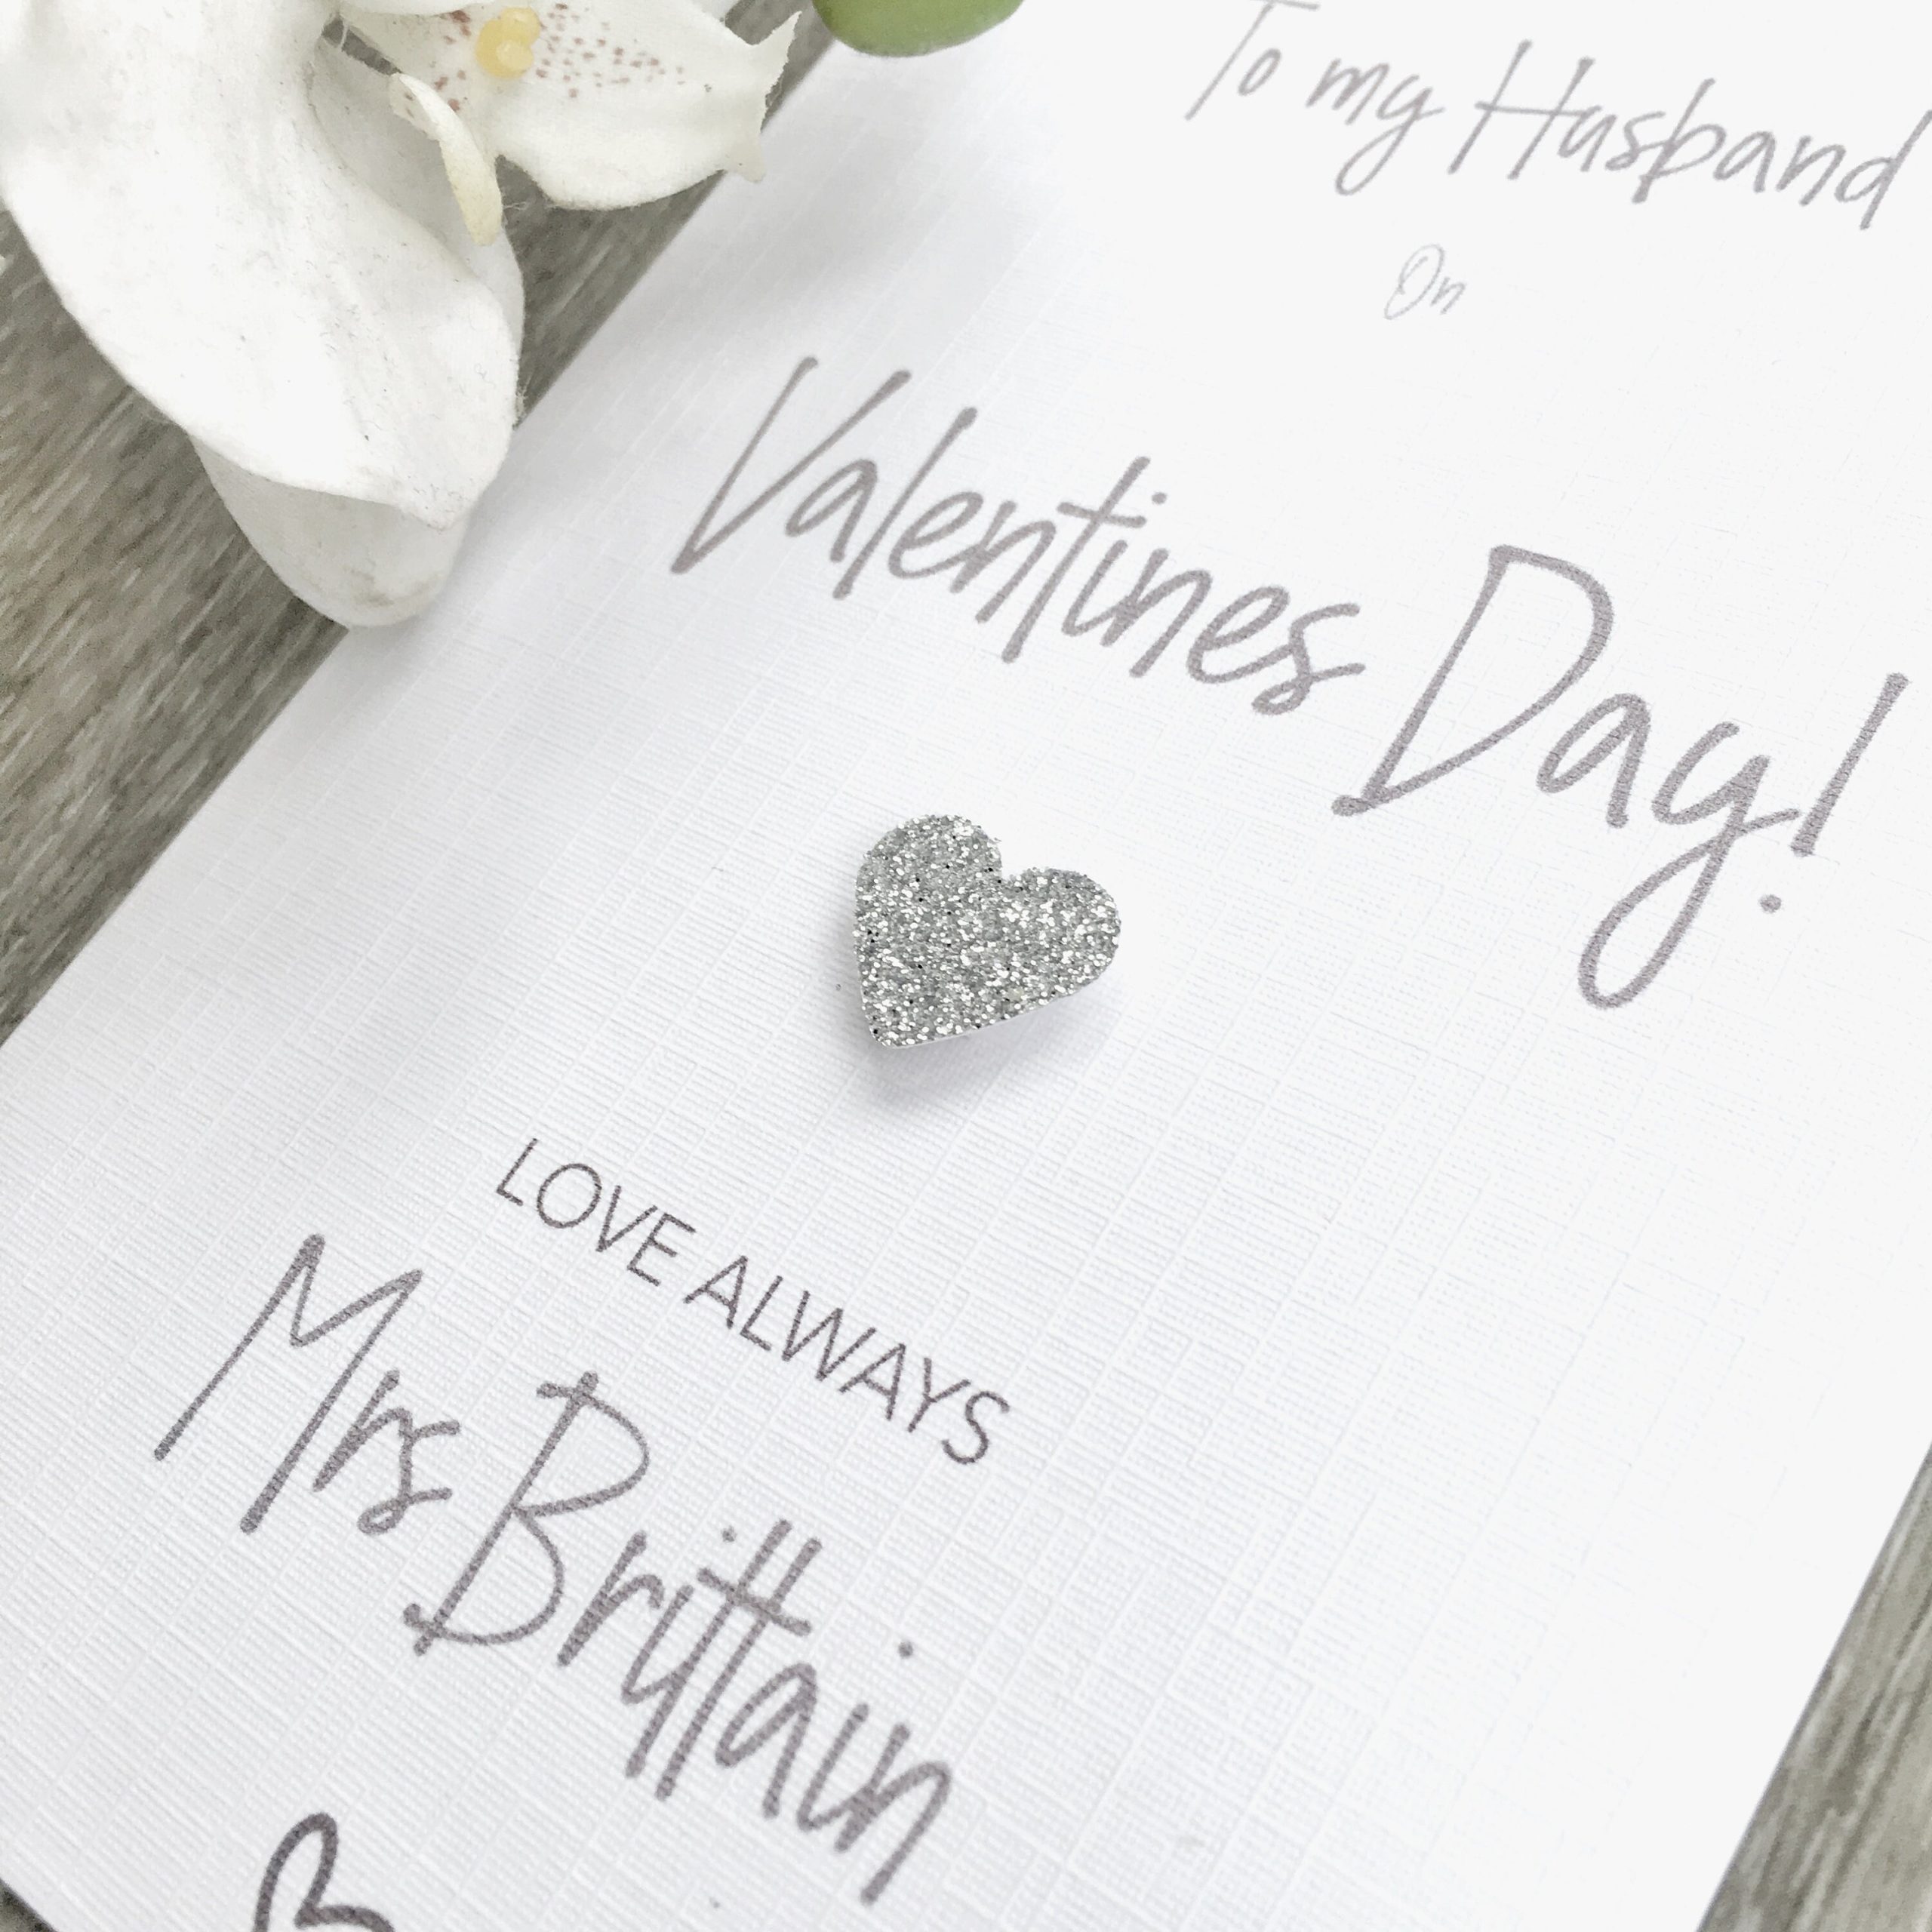 To my Husband
On
Valentines Day!
LOVE ALWAYS
Mrs Brittain